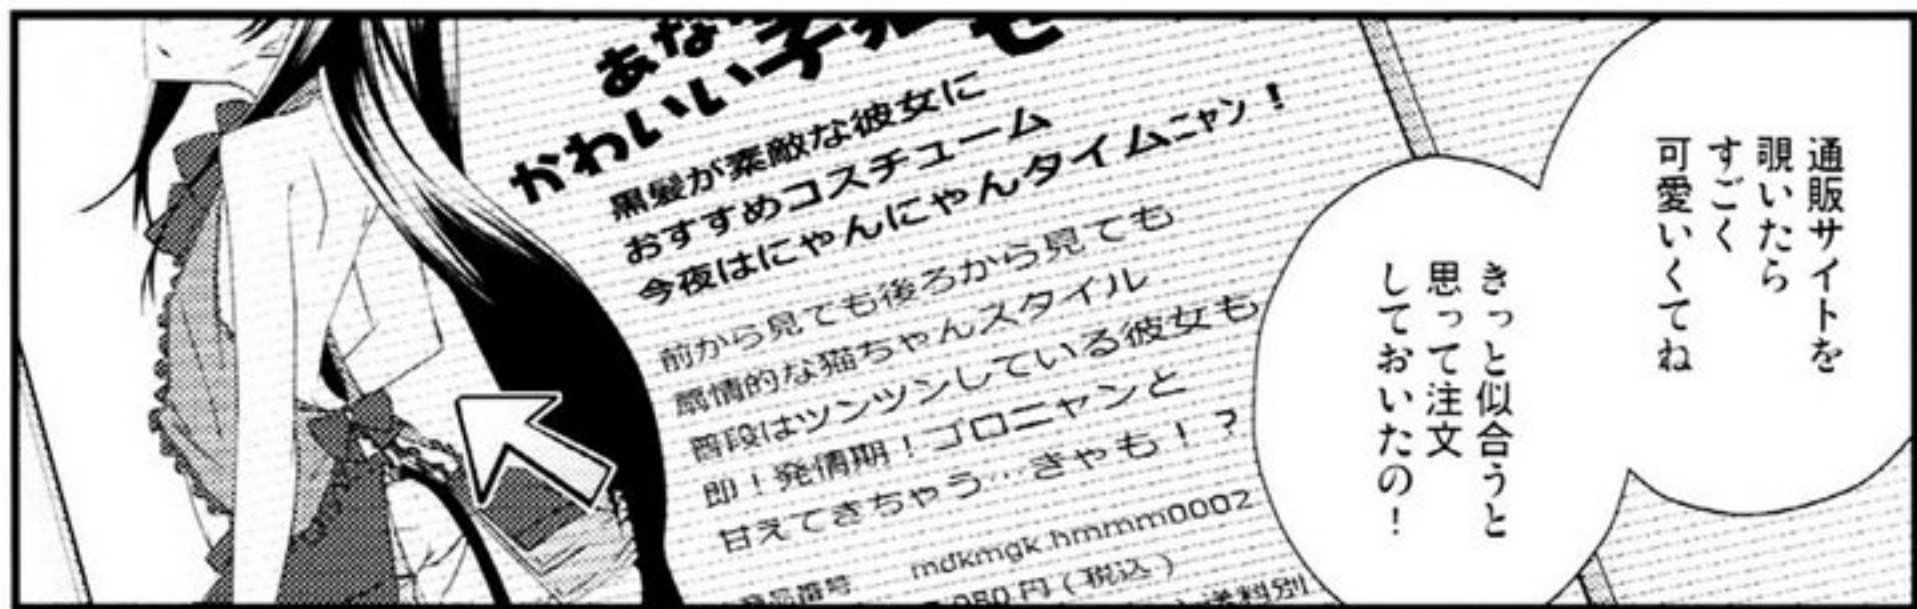 通販サイトを
覗いたら
すごく
可愛いくてね
きっと似合うと
思って注文
しておいたの！
あな
かわいい子猫を
黒髪が素敵な彼女に
おすすめコスチューム
今夜はにゃんにゃんタイムニャン！
前から見ても後ろから見ても
扇情的な猫ちゃんスタイル
普段はツンツンしている彼女も
即！発情期！ゴロニャンと
甘えてきちゃう…きゃも！？
商品番号 mdkmgk hmmm0002
980円（税込）
送料別